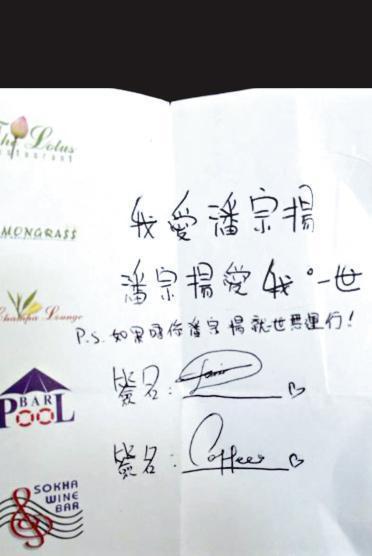 The Lotus
Restaurant
我愛潘宗揚
MONGRASS
潘宗揚愛我。一世
Champa Lounge
P.S. 如果 潘宗揚就世無運行!
BAR
POOL
簽名:
簽名: Coffee
SOKHA
WINE
BAR